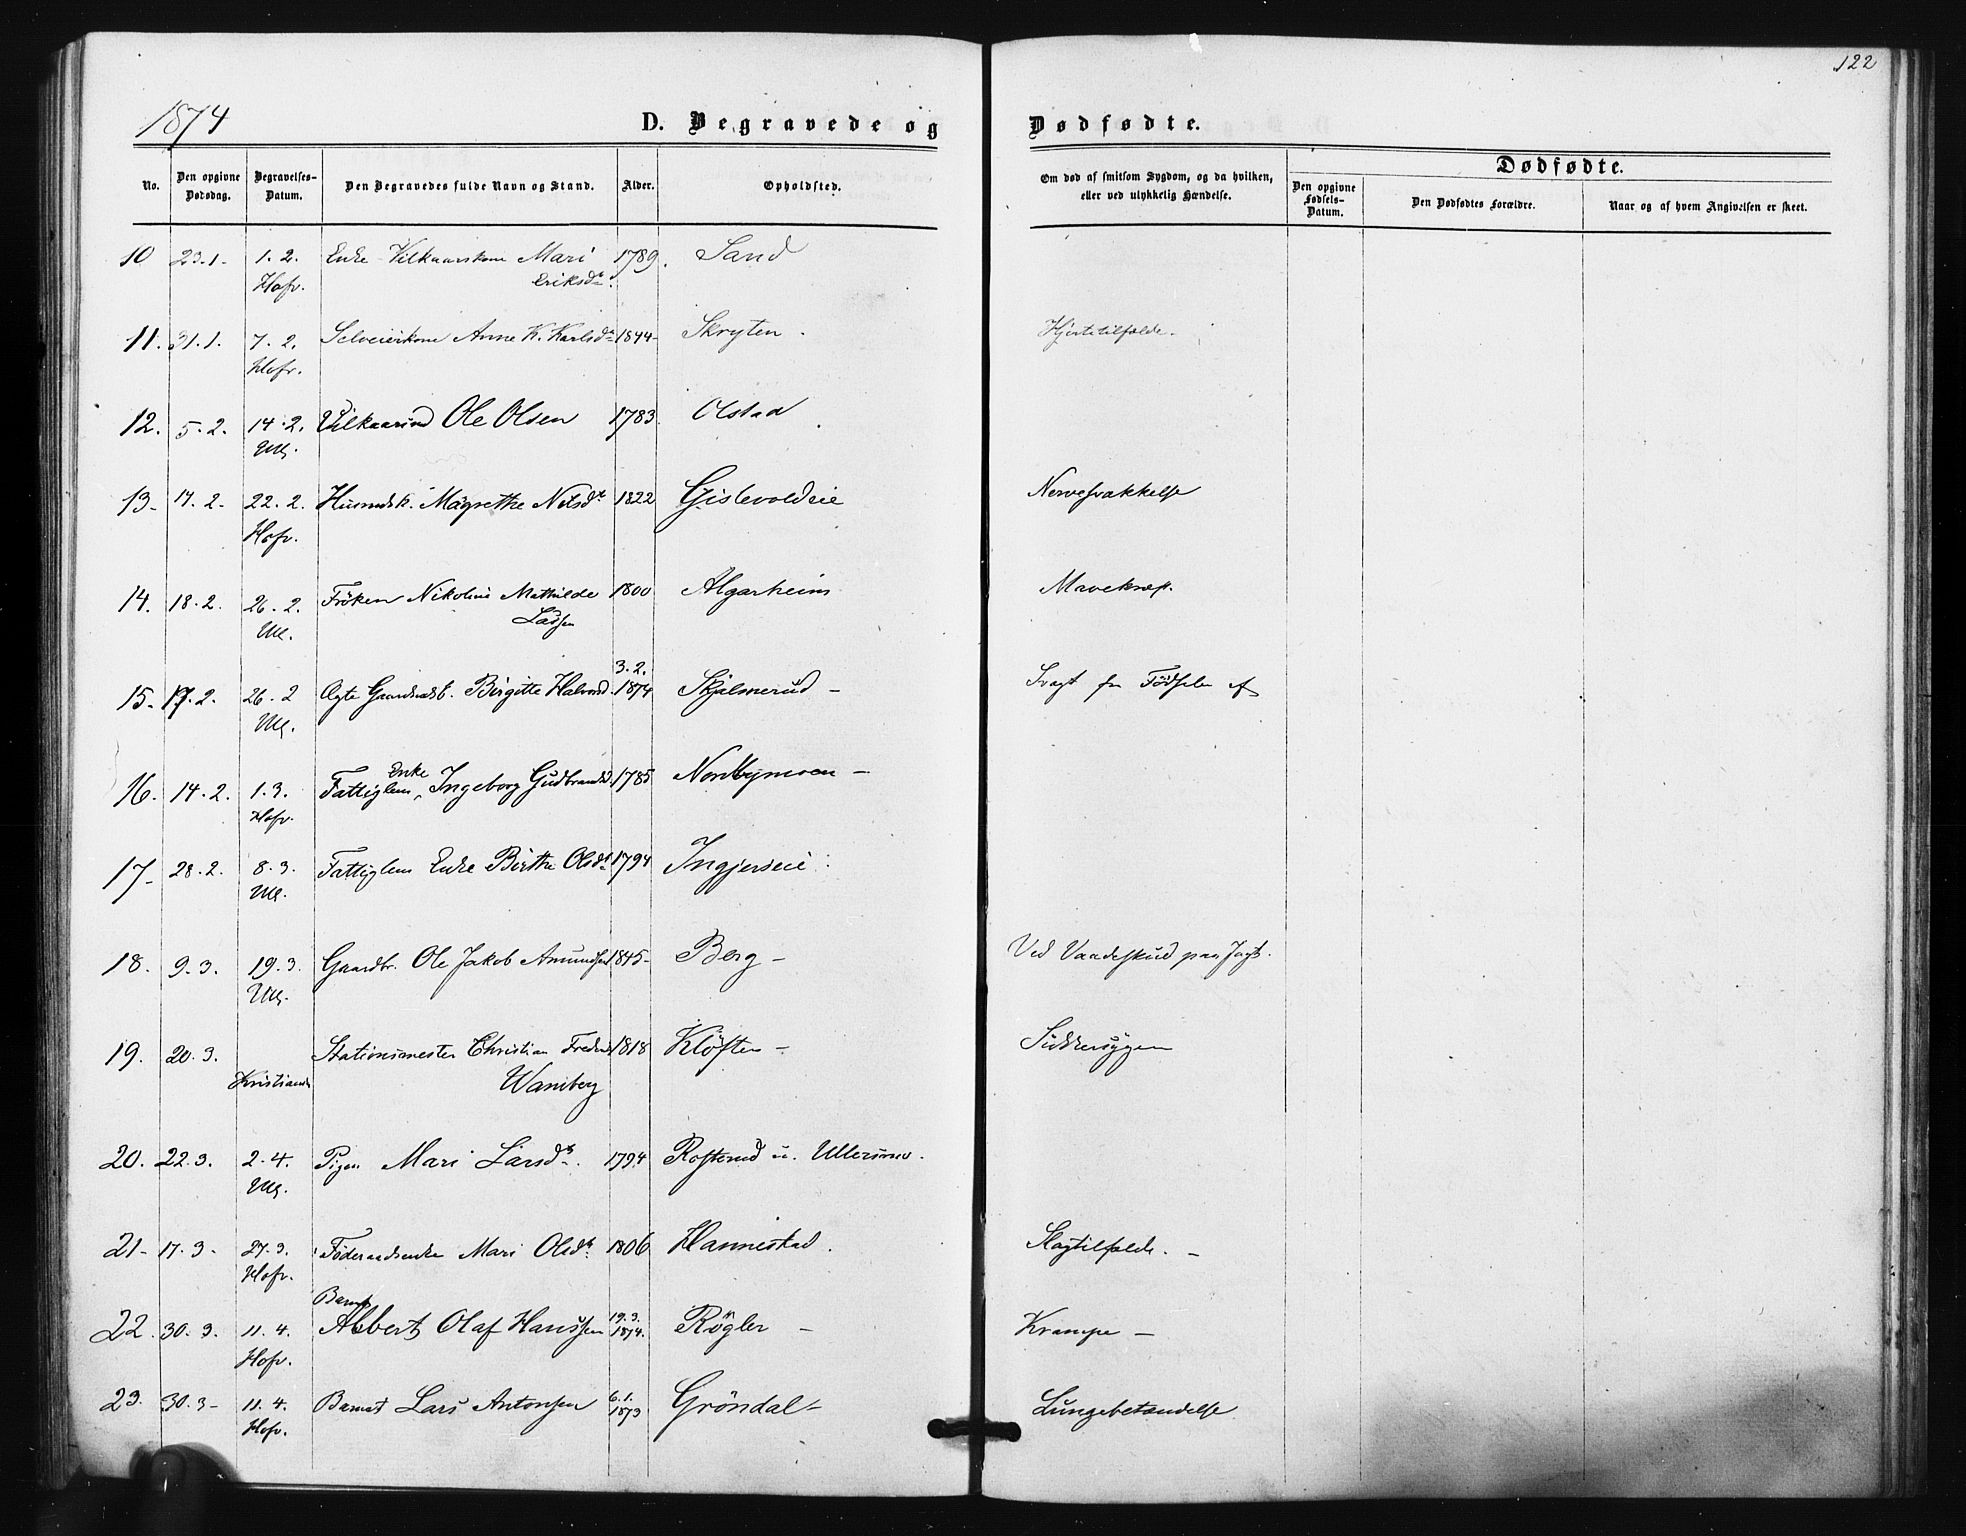 122
1874 D. Begravede og Dødfødte.
No. Den opgivne Dødsdag. Begravelses-Datum. Den Begravedes fulde Navn og Stand. Alder. Opholdsted. Om død af smitsom Sygdom, og da hvilken, eller ved ulykkelig Hændelse. Dødfødte.
Den opgivne Fødsels-Datum. Den Dødfødtes Forældre. Naar og af hvem Angivelsen er skeet.
10 23.1- 1.2. Enke Vilkaarskone Mari 1789. Sand
Hofv. Eriksdt.
11. 31.1. 7.2. Selveierkone Anne K. Karlsdt 1844- Skryten. Hjertetilfælde.
Hofv.
12. 5.2. 14.2. Ole Olsen 1783. Olstad
Ull.
13- 17.2- 22.2. Magrethe Nilsdt 1822 Gislevoldeie Nervesvækkelse
Hofv.
14. 18.2. 26.2. Frøken Nikoline Mathilde 1800 Algarheim Mavekræft.
Ull. Lassen
3.2.
15- 17.2. 26.2 Ægte Birgitte Halvorsd. 1874 Skjelmerud- Svagt fra Fødselen af
Ull.
Enke
16. 14.2. 1.3. Fattiglem, Ingeborg Gudbrandsd. 1785 Nordbymoen-
Hofv.
17- 28.2. 8.3. Fattiglem Enke Birthe Olsdt 1794 Ingjerseie
Ull.
18. 9.3. 19.3. Gaardbr. Ole Jakob Amundsen 1845- Berg- Ved Vaadeskud paa Jagt.
Ull.
19. 20.3. Stationsmester Christian Frederik 1818 Kløften- Sukkersygen
Kristiania Wamberg
20. 22.3. 2.4. Pigen Mari Larsdt. 1794 Ullersmo.
Ull.
21- 17.3- 27.3. Føderaadsenke Mari Olsdt. 1806 Hannestad. Slagtilfælde.-
Hofv.
Barnet 19.3.
22. 30.3. 11.4. Albert Olaf Hanssen 1874. Røgler- Krampe-
Hofv.
6.1.
23. 30.3- 11.4. Barnet Lars Antonsen 1873 Grøndal- Lungebetændelse
Hofv.